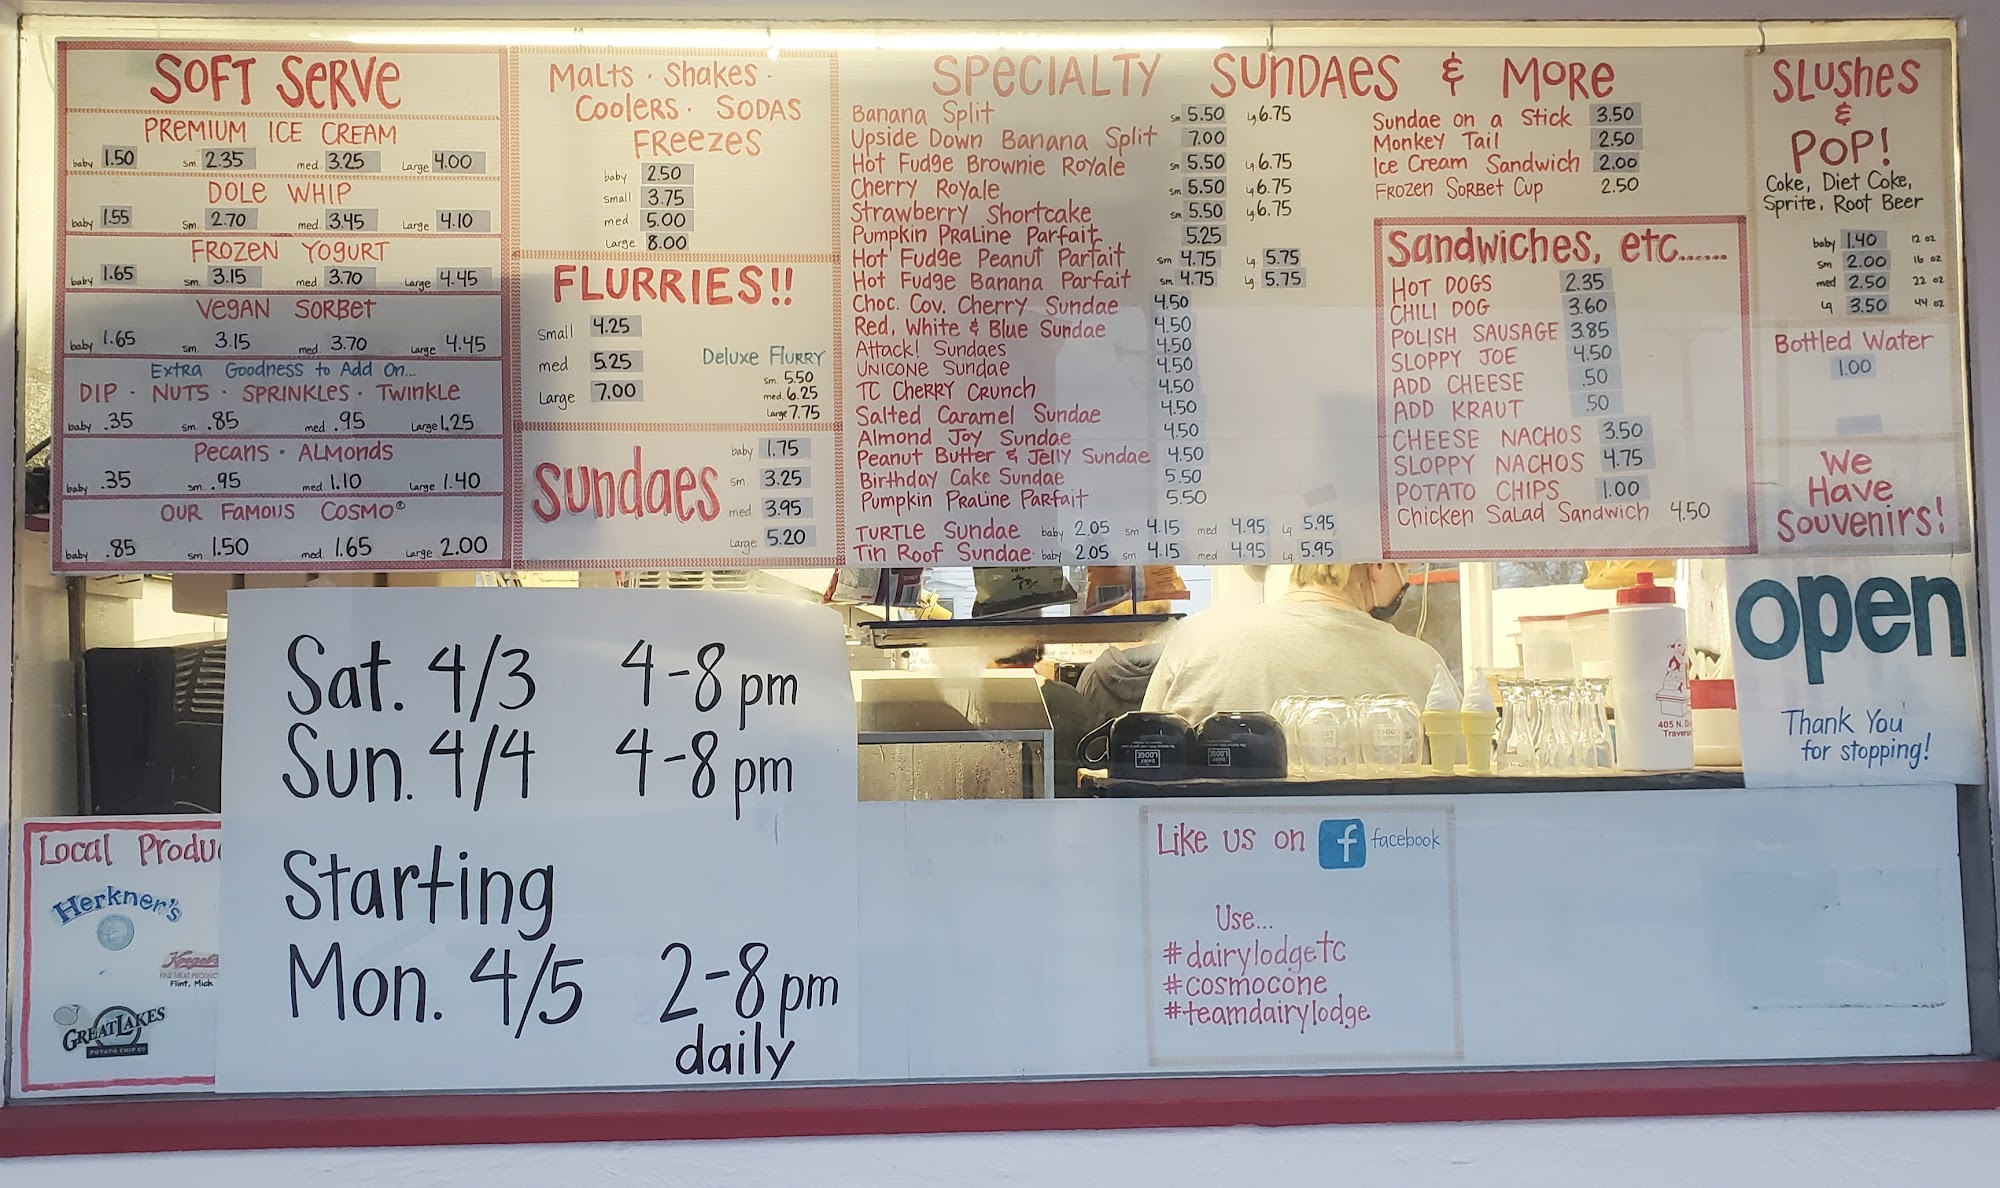 SOFT SERVE
PREMIUM ICE CREAM
baby 1.50 sm 2.35 med. 3.25 Large 4.00
DOLE WHIP
baby 1.55 Sm. 2.70 med. 3.45 Large 4.10
FROZEN YOGURT
baby 1.65 sm. 3.15 med. 3.70 Large 4.45
VEGAN SORBET
baby 1.65 sm. 3.15 med. 3.70 Large 4.45
Extra Goodness to Add On...
DIP · NUTS · SPRINKLES · Twinkle
baby .35 sm. .85 med .95 Large 1.25
Pecans · ALMONDS
baby .35 sm. .95 med 1.10 Large 1.40
OUR FAMOUS COSMO®
baby .85 sm 1.50 med. 1.65 Large 2.00
Malts · Shakes ·
Coolers · SODAS
FREEZES
baby 2.50
small 3.75
med. 5.00
Large 8.00
FLURRIES!!
Small 4.25
med. 5.25
Large 7.00
Deluxe FLURRY
sm. 5.50
med. 6.25
Large 7.75
Sundaes
baby 1.75
sm. 3.25
med 3.95
Large 5.20
SPECIALTY SUNDAES & MORE
Banana Split sm 5.50 Lg 6.75
Upside Down Banana Split 7.00
Hot Fudge Brownie Royale sm 5.50 Lg. 6.75
Cherry Royale sm. 5.50 Lg 6.75
Strawberry Shortcake sm. 5.50 Lg. 6.75
Pumpkin PraLine Parfait 5.25
Hot Fudge Peanut Parfait sm 4.75 Lg. 5.75
Hot Fudge Banana Parfait sm. 4.75 Lg. 5.75
Choc. Cov. Cherry Sundae 4.50
Red, White & Blue Sundae 4.50
Attack! Sundaes 4.50
UNICONE Sundae 4.50
TC CHERRY Crunch 4.50
Salted Caramel Sundae 4.50
Almond Joy Sundae 4.50
Peanut Butter & Jelly Sundae 4.50
Birthday Cake Sundae 5.50
Pumpkin PraLine Parfait 5.50
TURTLE Sundae baby 2.05 sm 4.15 med 4.95 Lg. 5.95
Tin Roof Sundae baby 2.05 sm 4.15 med 4.95 Lg. 5.95
Sundae on a Stick 3.50
Monkey Tail 2.50
Ice Cream Sandwich 2.00
FROZEN SORBET CUP 2.50
Sandwiches, etc......
HOT DOGS 2.35
CHILI DOG 3.60
POLISH SAUSAGE 3.85
SLOPPY JOE 4.50
ADD CHEESE .50
ADD KRAUT .50
CHEESE NACHOS 3.50
SLOPPY NACHOS 4.75
POTATO CHIPS 1.00
Chicken Salad Sandwich 4.50
SLUSHES
&
POP!
Coke, Diet Coke,
Sprite, Root Beer
baby 1.40 12 oz
sm 2.00 16 oz
med 2.50 22 oz
Lg 3.50 44 oz
Bottled Water
1.00
We
Have
Souvenirs!
open
Thank You
for stopping!
Sat. 4/3 4-8 pm
Sun. 4/4 4-8 pm
Starting
Mon. 4/5 2-8 pm
daily
405 N. Di
Traver
DAIRY LODGE
DAIRY LODGE
Local Produ
Herkner's
Koegel's
Flint, Mich.
GREAT LAKES
POTATO CHIP CO
Like us on f facebook
Use...
#dairylodgetc
#cosmocone
#teamdairylodge